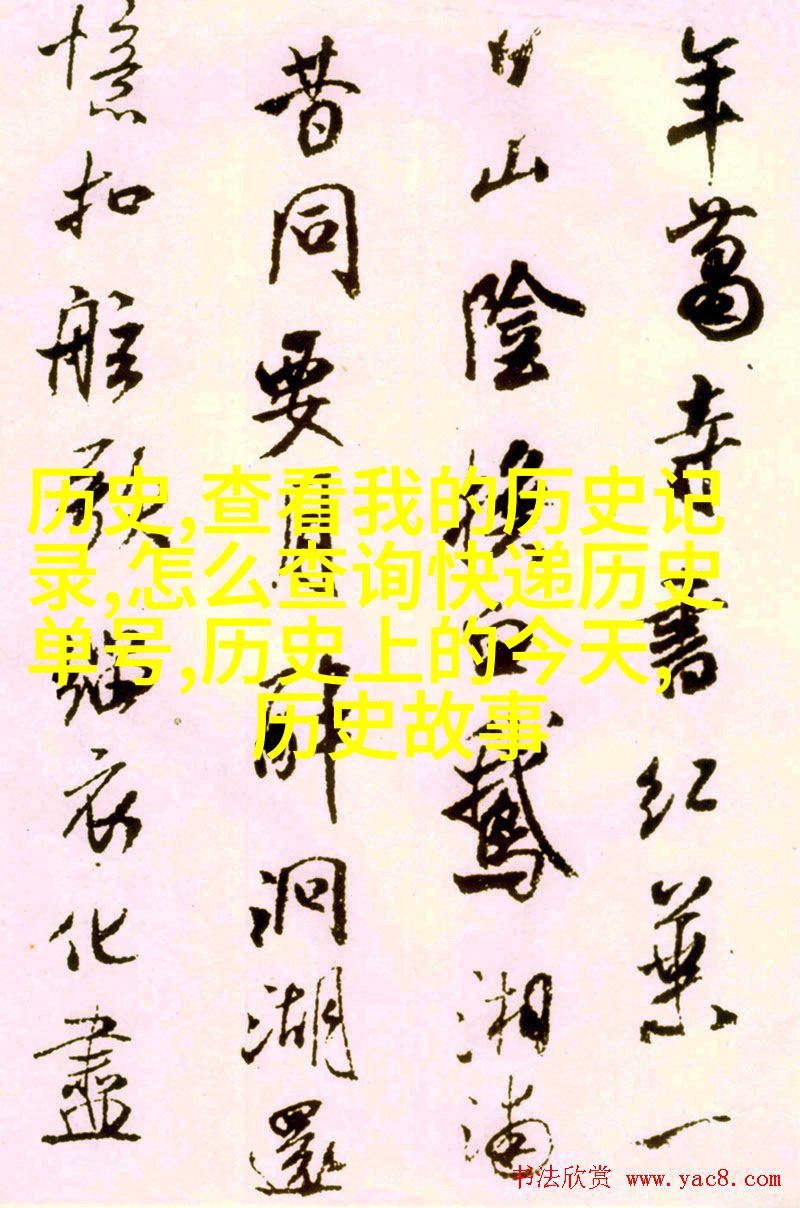 年蕭寺書紅葉一
日山陰換白鵝湘浦
昔同要月醉洞湖還
憶扣舷歌緇衣化盡
历史,查看我的历史记
录,怎么查询快递历史
单号,历史上的今天,
历史故事
书法欣赏 www.yac8.com